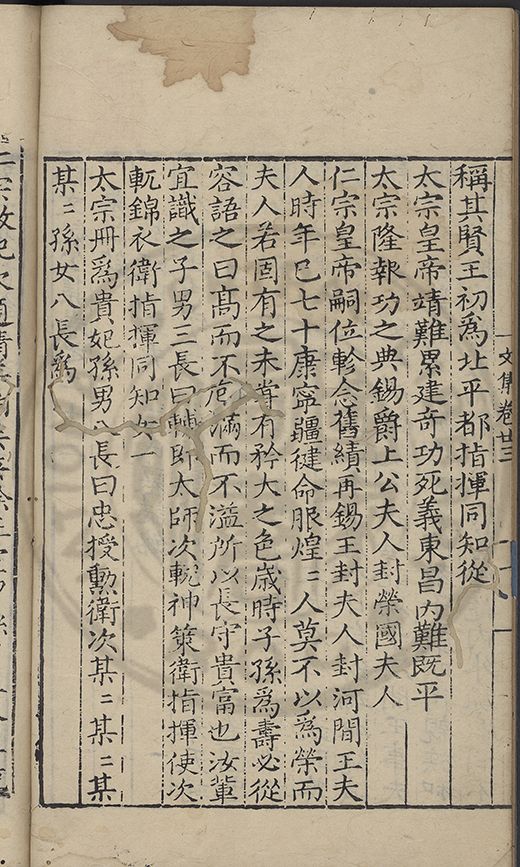 文集卷廿三
稱其賢王初爲北平都指揮同知從
太宗皇帝靖難累建奇功死義東昌內難既平
太宗隆報功之典錫爵上公夫人封榮國夫人
仁宗皇帝嗣位軫念舊績再錫王封夫人封河間王夫
人時年巳七十康寧彊健命服煌〻人莫不以爲榮而
夫人若固有之未甞有矜大之色歳時子孫爲壽必從
容語之曰髙而不危滿而不溢所以長守貴富也汝軰
宜識之子男三長曰輔即太師次輗神策衛指揮使次
軏錦衣衛指揮同知女一
太宗冊爲貴妃孫男八長曰忠授勲衛次某〻某〻某
某〻孫女八長爲